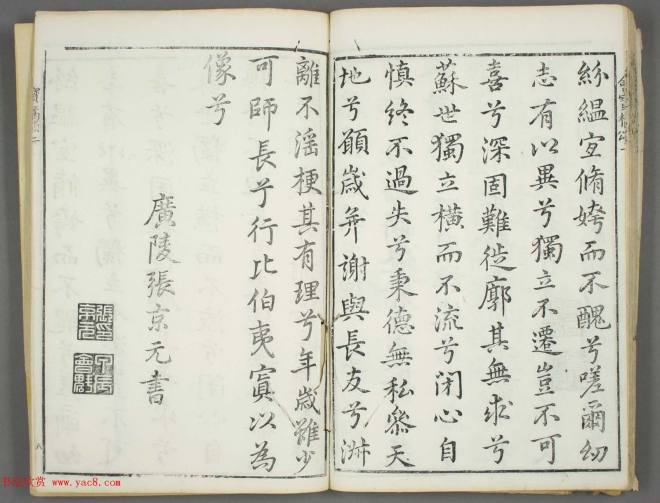 紛緼宜脩姱而不醜兮嗟爾幼
志有以異兮獨立不遷豈不可
喜兮深固難徙廓其無求兮
蘇世獨立橫而不流兮閉心自
慎終不過失兮秉德無私參天
地兮願歲并謝與長友兮淋
離不淫梗其有理兮年歲雖少
可師長兮行比伯夷寘以為
像兮
廣陵張京元書
書法欣賞 www.yac8.com